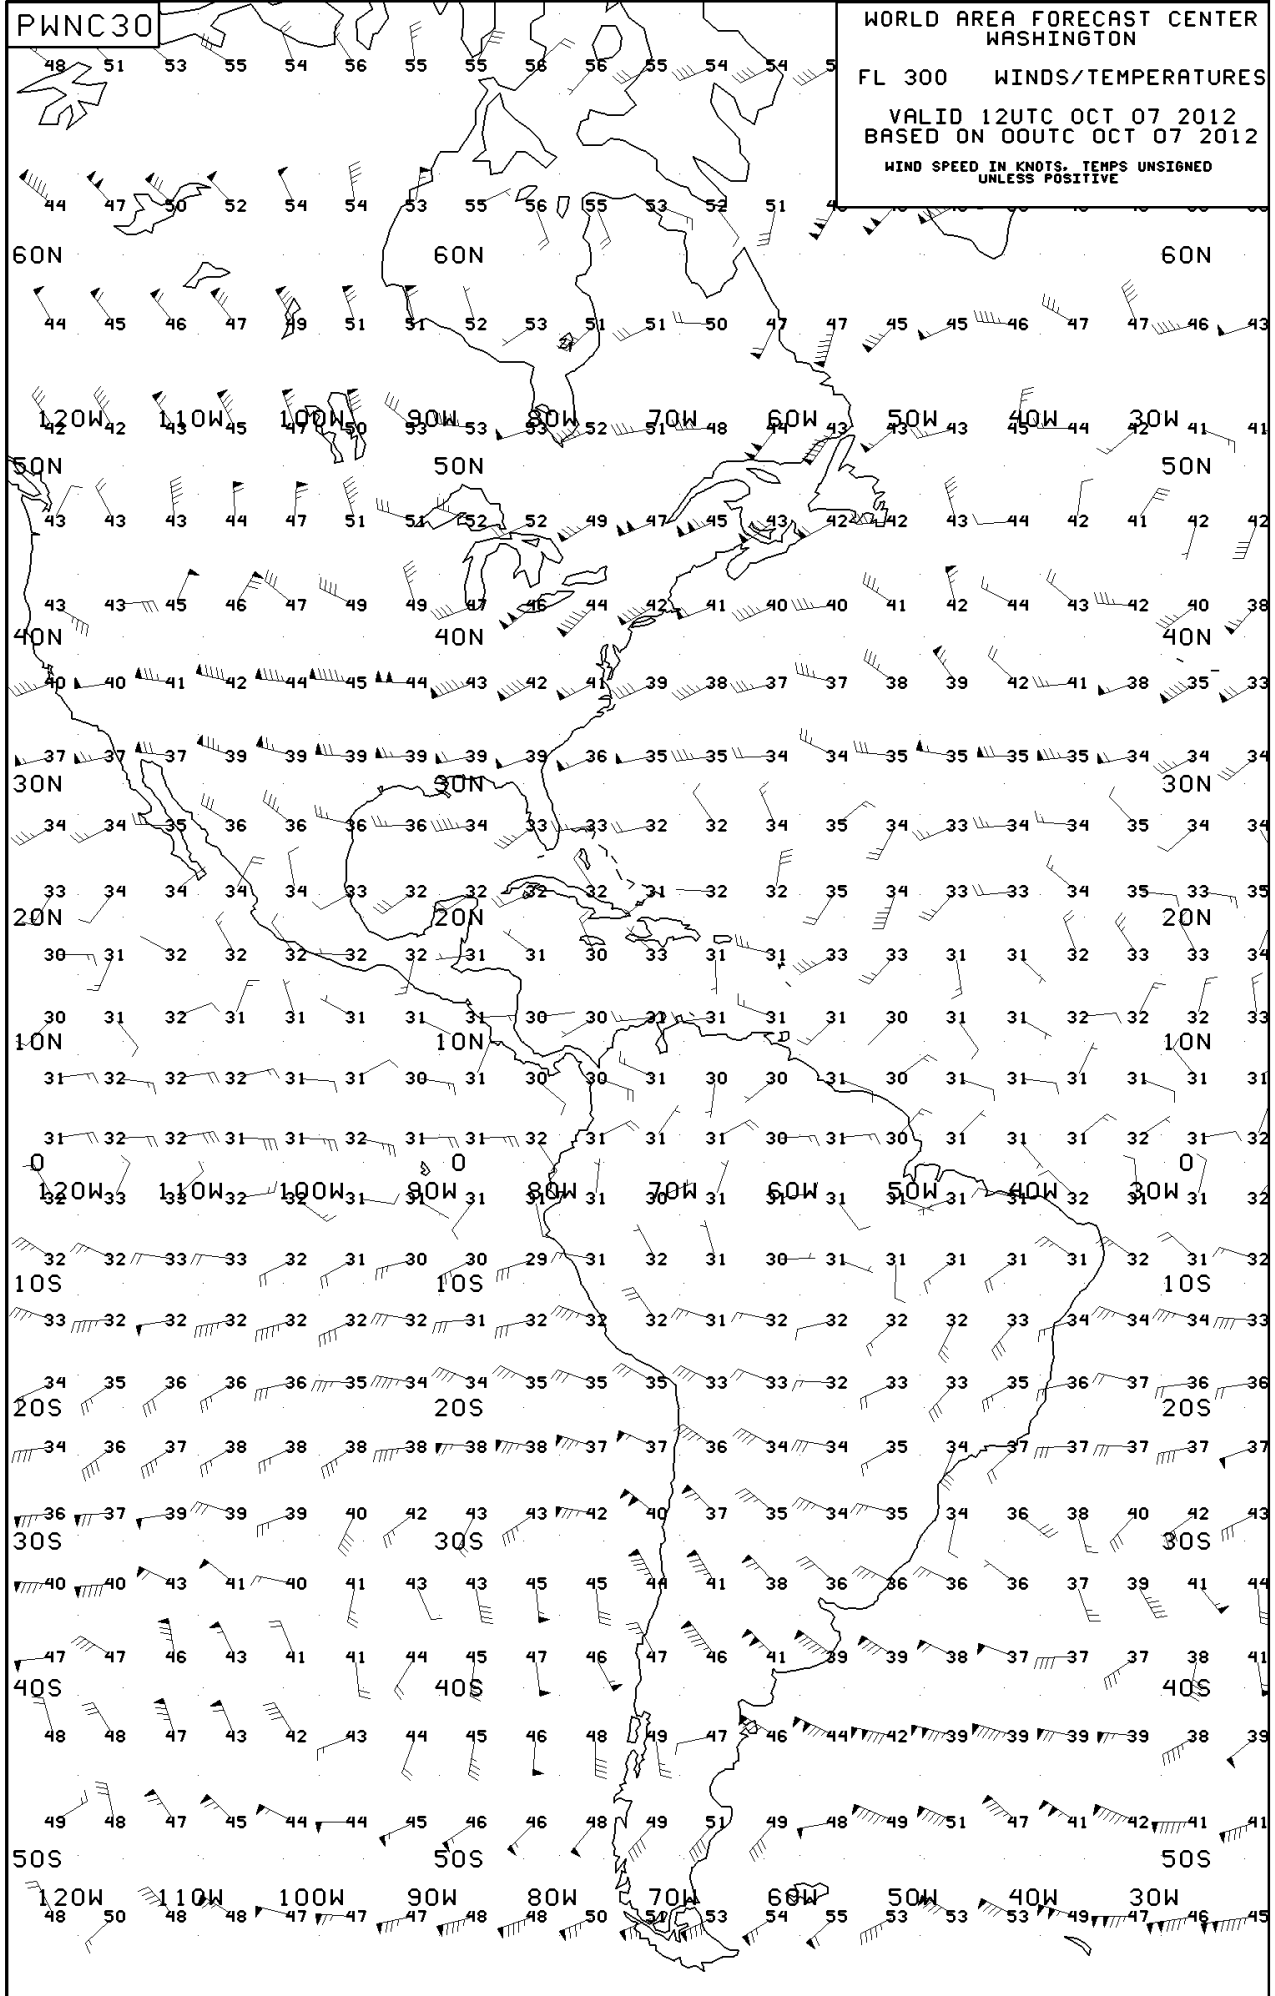 PWNC30
WORLD AREA FORECAST CENTER
WASHINGTON
FL 300 WINDS/TEMPERATURES
VALID 12UTC OCT 07 2012
BASED ON 00UTC OCT 07 2012
WIND SPEED IN KNOTS, TEMPS UNSIGNED
UNLESS POSITIVE
48 51 53 55 54 56 55 55 56 56 55 54 54
44 47 50 52 54 54 53 55 56 55 53 52 51
60N 60N 60N
44 45 46 47 49 51 51 52 53 51 51 50 47 47 45 45 46 47 47 46 43
120W 110W 100W 90W 80W 70W 60W 50W 40W 30W
42 42 43 45 47 50 53 53 53 52 51 48 44 43 43 43 45 44 42 41 41
50N 50N 50N
43 43 43 44 47 51 51 52 52 49 47 45 43 42 42 43 44 42 41 42 42
43 43 45 46 47 49 49 47 46 44 42 41 40 40 41 42 44 43 42 40 38
40N 40N 40N
40 40 41 42 44 45 44 43 42 41 39 38 37 37 38 39 42 41 38 35 33
37 37 37 39 39 39 39 39 39 36 35 35 34 34 35 35 35 35 34 34 34
30N 30N 30N
34 34 35 36 36 36 36 34 33 33 32 32 34 35 34 33 34 34 35 34 34
33 34 34 34 34 33 32 32 32 32 31 32 32 35 34 33 33 34 35 33 35
20N 20N 20N
30 31 32 32 32 32 32 31 31 30 33 31 31 33 33 31 31 32 33 33 34
30 31 32 31 31 31 31 31 30 30 31 31 31 31 30 31 31 32 32 32 33
10N 10N 10N
31 32 32 32 31 31 30 31 30 30 31 30 30 31 30 31 31 31 31 31 31
31 32 32 31 31 32 31 31 32 31 31 31 30 31 30 31 31 31 32 31 32
0 0 0
120W 110W 100W 90W 80W 70W 60W 50W 40W 30W
32 33 33 32 32 31 31 31 31 31 30 31 31 31 31 31 31 32 31 31 32
32 32 33 33 32 31 30 30 29 31 32 31 30 31 31 31 31 31 32 31 32
10S 10S 10S
33 32 32 32 32 32 32 31 32 32 32 31 32 32 32 32 33 34 34 34 33
34 35 36 36 36 35 34 34 35 35 35 33 33 32 33 33 35 36 37 36 36
20S 20S 20S
34 36 37 38 38 38 38 38 38 37 37 36 34 34 35 34 37 37 37 37 37
36 37 39 39 39 40 42 43 43 42 40 37 35 34 35 34 36 38 40 42 43
30S 30S 30S
40 40 43 41 40 41 43 43 45 45 44 41 38 36 36 36 36 37 39 41 44
47 47 46 43 41 41 44 45 47 46 47 46 41 39 39 38 37 37 37 38 41
40S 40S 40S
48 48 47 43 42 43 44 45 46 48 49 47 46 44 42 39 39 39 39 38 39
49 48 47 45 44 44 45 46 46 48 49 51 49 48 49 51 47 41 42 41 41
50S 50S 50S
120W 110W 100W 90W 80W 70W 60W 50W 40W 30W
48 50 48 48 47 47 47 48 48 50 51 53 54 55 53 53 53 49 47 46 45